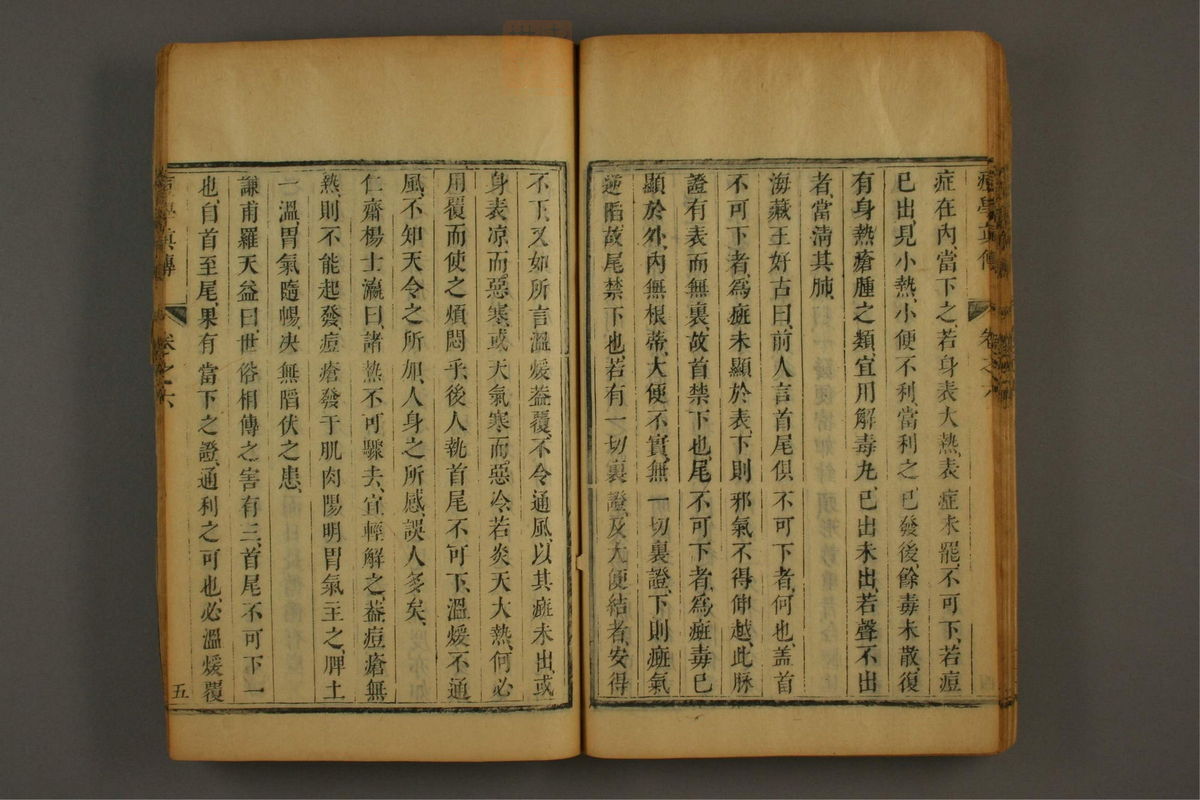 症在內、當下之、若身表大熱、表症未罷、不可下、若痘
已出、見小熱、小便不利當利之、已發後餘毒未散、復
有身熱瘡腫之類宜用解毒丸、已出未出、若聲不出
者、當淸其肺、
海藏王好古曰、前人言首尾俱不可下者、何也、盖首
不可下者、爲癍未顯於表、下則邪氣不得伸越、此脉
證有表而無裏、故首禁下也、尾不可下者、爲癍毒已
顯於外、內無根蒂、大便不實、無一切裏證、下則癍氣
逆陷、故尾禁下也、若有一切裏證、及大便結者、安得
卷之六
不下、又如所言溫煖葢覆、不令通風、以其癍未出、或
身表凉、而惡寒、或天氣寒而惡冷、若炎天大熱、何必
用覆而使之煩悶乎、後人執首尾不可下、溫煖不通
風、不知天令之所加、人身之所感、誤人多矣、
仁齋楊士瀛曰、諸熱不可驟去、宜輕解之、葢痘瘡無
熱則不能起發、痘瘡發于肌肉、陽明胃氣主之、脾土
一溫、胃氣隨暢、决無陷伏之患、
謙甫羅天益曰、世俗相傳之害有三、首尾不可下一
也、自首至尾、果有當下之證、通利之可也、必溫煖覆
卷之六
五